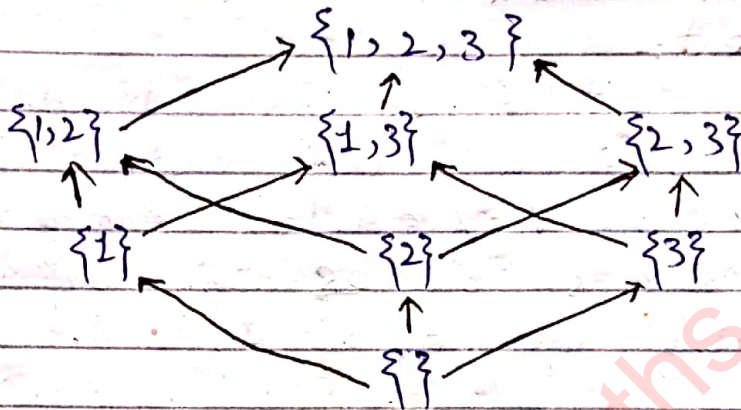 {1, 2, 3}
{1,2} {1,3} {2,3}
{1} {2} {3}
{}
ths